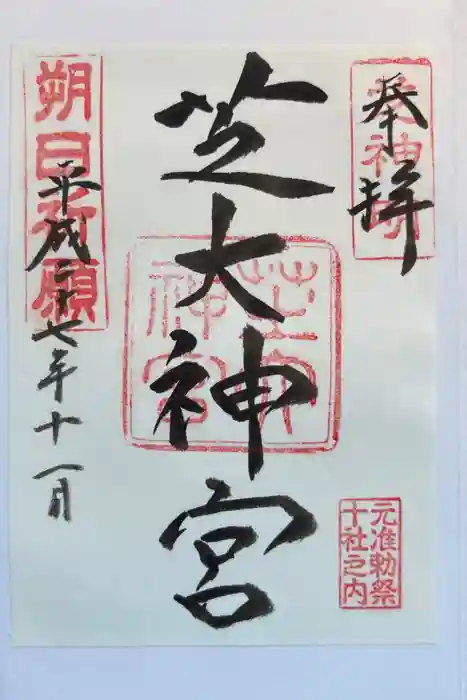 奉拝
芝大神宮
平成二十七年十一月
朔日祈願
元准勅祭
十社之内